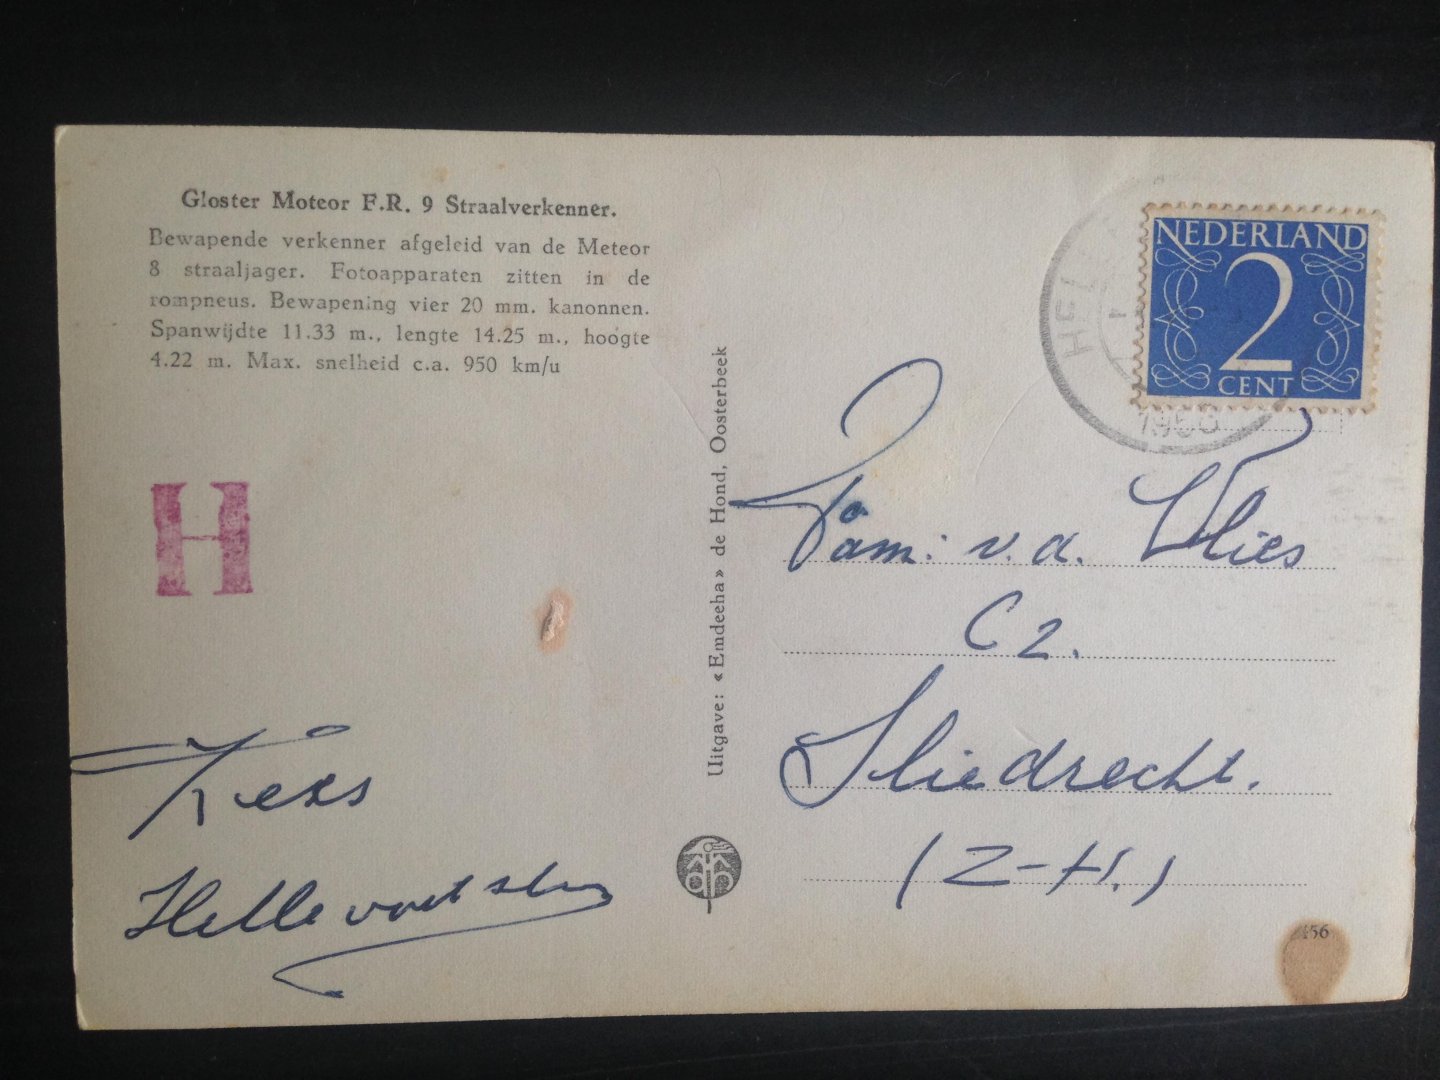 Gloster Meteor F.R. 9 Straalverkenner.
Bewapende verkenner afgeleid van de Meteor
8 straaljager. Fotoapparaten zitten in de
rompneus. Bewapening vier 20 mm. kanonnen.
Spanwijdte 11.33 m., lengte 14.25 m., hoogte
4.22 m. Max. snelheid c.a. 950 km/u
H
Kees
Hellevoetsluis
Uitgave: «Emdeeha» de Hond, Oosterbeek
NEDERLAND
2
CENT
Fam: v.d. Vlies
C 2.
Sliedrecht.
(Z-H.)